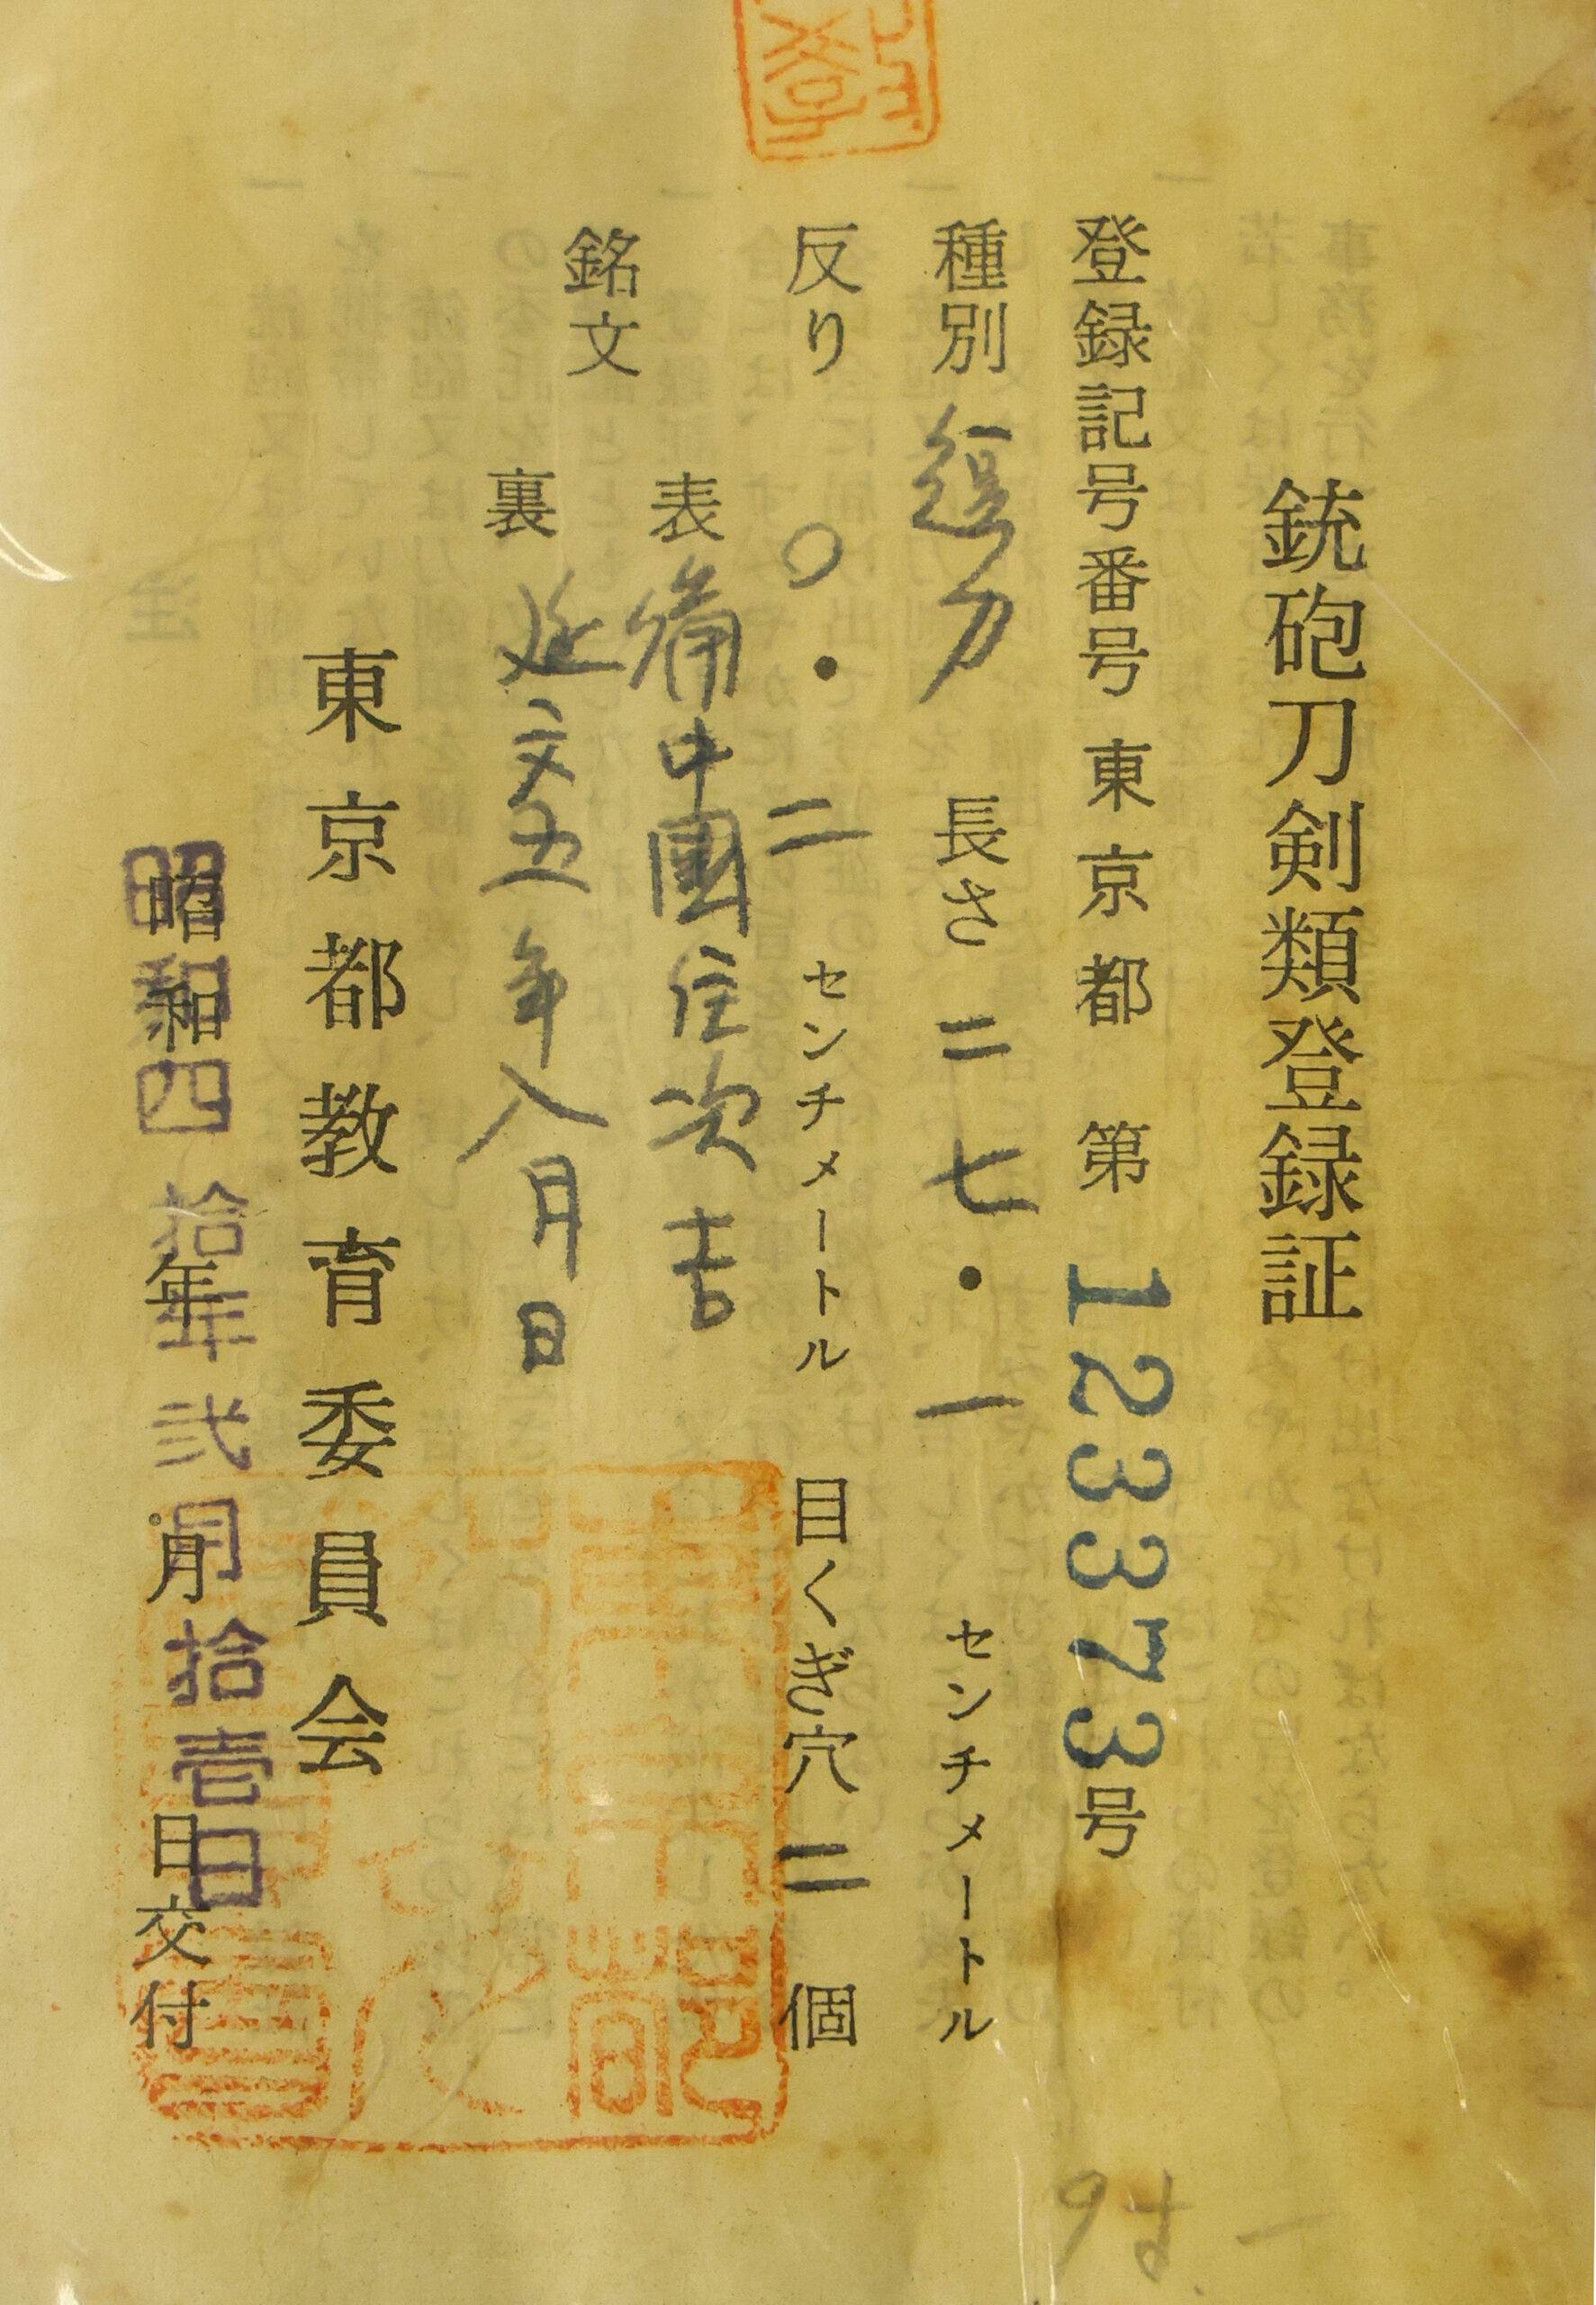 銃砲刀剣類登録証
登録記号番号 東京都 第 123373号
種別 短刀 長さ 二七・一 センチメートル
反り 〇・二 センチメートル 目くぎ穴 二 個
銘文
表 備中國住次吉
裏 延文五年八月日
東京都教育委員会
昭和四拾年弐月拾壱日交付